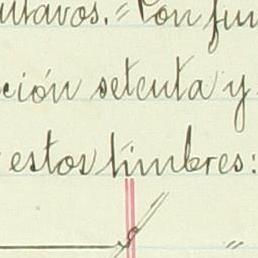 utavos.=Con fun
ción setenta y
estos timbres:
"